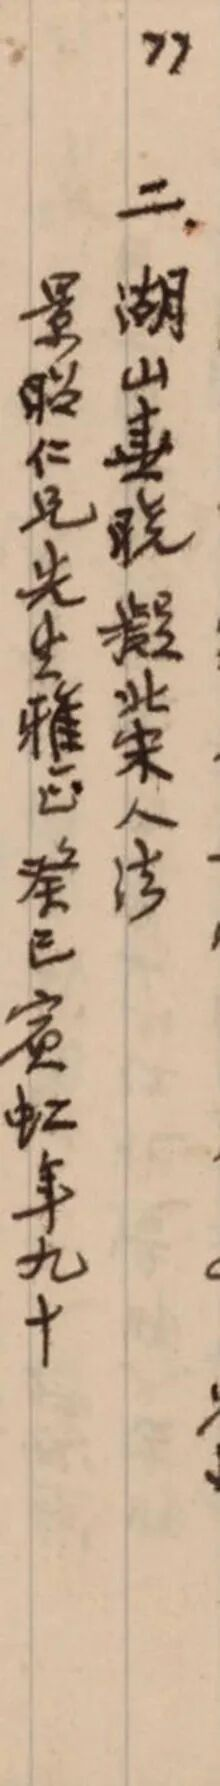 二. 湖山春晓 拟北宋人法
景昭仁兄先生雅正 癸巳 宾虹年九十